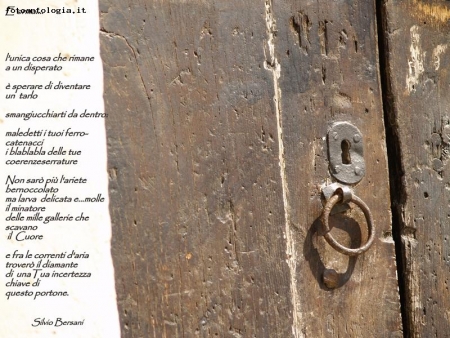 fotoantologia.it
l'unica cosa che rimane
a un disperato
è sperare di diventare
un tarlo
smangiucchiarti da dentro:
maledetti i tuoi ferro-
catenacci
i blablabla delle tue
coerenzeserrature
Non sarò più l'ariete
bernoccolato
ma larva delicata e...molle
il minatore
delle mille gallerie che
scavano
il Cuore
e fra le correnti d'aria
troverò il diamante
di una Tua incertezza
chiave di
questo portone.
Silvio Bersani